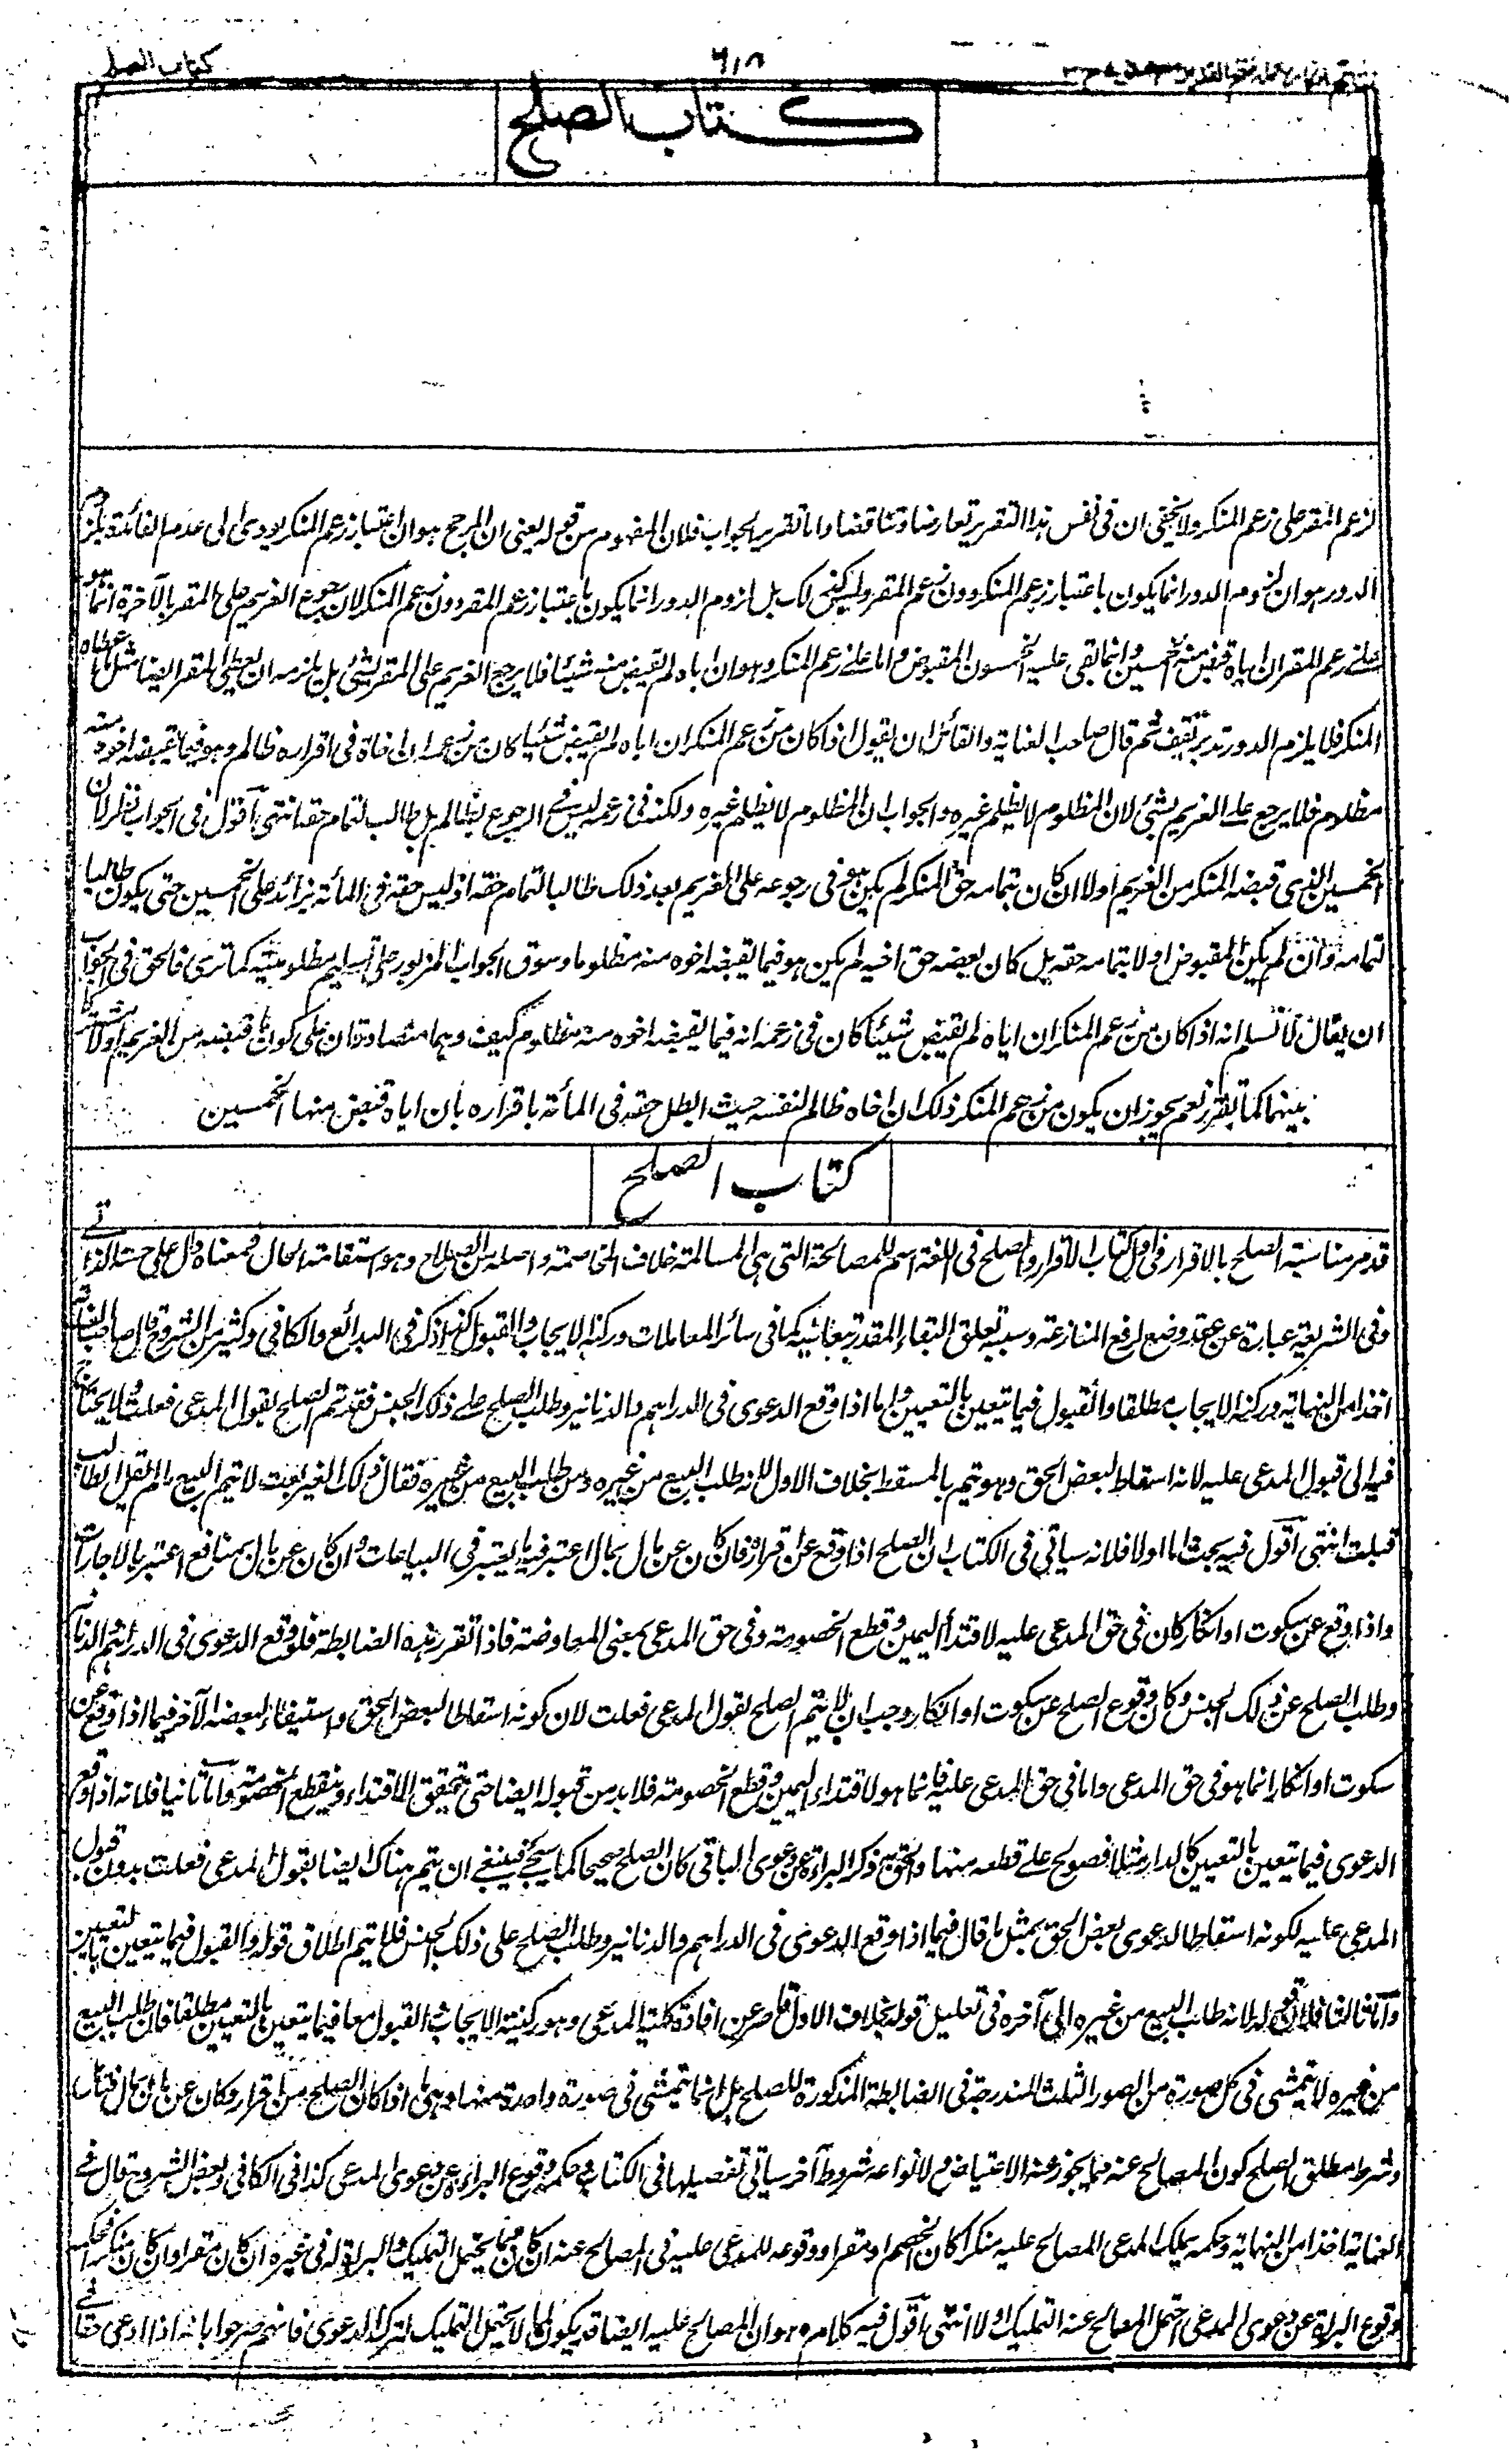 كتاب الصلح
٦١٨
كتاب الصلح
لزعم المقر على زعم المنكر ولا يخفى ان فى نفس هذا التقرير تعارضا وتناقضا واما تقرير الجواب فلان المفهوم من قوله يعنى ان المرجح هو ان اعتبار زعم المنكر يودى الى عدم الفائدة بلزوم
الدور هو ان لزوم الدور انما يكون باعتبار زعم المنكر دون زعم المقر وليس كذلك بل لزوم الدور انما يكون باعتبار زعم المقر دون زعم المنكر لان رجوع الغريم على المقر بالآخرة انما هو
على زعم المقر ان اباه قبض منه خمسين وانما بقى عليه الخمسون المقبوض واما على زعم المنكر وهو ان اباه لم يقبض منه شيئا فلا يرجع الغريم على المقر بشئ بل يلزمه ان يعطى المقر ايضا مثل ما اعطاه
المنكر فلا يلزم الدور تدبر تقف ثم قال صاحب العناية والقائل ان يقول اذا كان من زعم المنكر ان اباه لم يقبض شيئا كان من زعمه ان اخاه فى اقراره ظالم وهو فيما يقبضه اخوه منه
مظلوم فلا يرجع على الغريم بشئ لان المظلوم لا يظلم غيره والجواب ان المظلوم لا يظلم غيره ولكنه فى زعمه ليس فى الرجوع بظالم بل طالب لتمام حقه انتهى اقول فى الجواب نظر لان
الخمسين الذى قبضه المنكر من الغريم اولا ان كان بتمامه حق المنكر لم يكن هو فى رجوعه على الغريم بعد ذلك طالبا لتمام حقه اذ ليس حقه فى المأة بزائد على الخمسين حتى يكون طالبا
لتمامه وان لم يكن المقبوض اولا بتمامه حقه بل كان بعضه حق اخيه لم يكن هو فيما يقبضه اخوه منه مظلوما وسوق الجواب المزبور على تسليم مظلوميته كما ترى فالحق فى الجواب
ان يقال لا نسلم انه اذا كان من زعم المنكر ان اباه لم يقبض شيئا كان فى زعمه انه فيما يقبضه اخوه منه مظلوم كيف وهما متصادقان على كون ما قبضه من الغريم اولا مشتركا
بينهما كما تقرر نعم يجوز ان يكون من زعم المنكر ذلك ان اخاه ظالم لنفسه حيث ابطل حقه فى المأة باقراره بان اباه قبض منها الخمسين
كتاب الصلح
قد مر مناسبة الصلح بالاقرار فى اول كتاب الاقرار والصلح فى اللغة اسم للمصالحة التى هى المسالمة خلاف المخاصمة واصله من الصلاح وهو استقامة الحال فمعناه دال على حسنه الذاتى
وفى الشريعة عبارة عن عقد وضع لرفع المنازعة وسببه تعلق البقاء المقدر بتعاطيه كما فى سائر المعاملات وركنه الايجاب والقبول كذا ذكر فى البدائع والكافى وكثير من الشروح قال صاحب العناية
اخذا من النهاية وركنه الايجاب مطلقا والقبول فيما يتعين بالتعيين واما اذا وقع الدعوى فى الدراهم والدنانير وطلب الصلح على ذلك الجنس فقد تم الصلح بقول المدعى فعلت ولا يحتاج
فيه الى قبول المدعى عليه لانه اسقاط لبعض الحق وهو يتم بالمسقط بخلاف الاول لانه طلب البيع من غيره ومن طلب البيع من غيره فقال ذلك الغير بعت لا يتم البيع ما لم يقل الطالب
قبلت انتهى اقول فيه بحث اما اولا فلانه سياتى فى الكتاب ان الصلح اذا وقع عن اقرار فان كان عن مال بمال اعتبر فيه ما يعتبر فى البياعات وان كان عن مال بمنافع اعتبر بالاجارات
واذا وقع عن سكوت او انكار كان فى حق المدعى عليه لافتداء اليمين وقطع الخصومة وفى حق المدعى بمعنى المعاوضة فاذا تقرر هذه الضابطة فلو وقع الدعوى فى الدراهم والدنانير
وطلب الصلح عن ذلك الجنس وكان وقوع الصلح عن سكوت او انكار وجب ان لا يتم الصلح بقول المدعى فعلت لان كونه اسقاطا لبعض الحق واستيفاء لبعضه الآخر فيما اذا وقع عن
سكوت او انكار انما هو فى حق المدعى واما فى حق المدعى عليه فانما هو لافتداء اليمين وقطع الخصومة فلا بد من قبوله ايضا حتى يتحقق الافتداء وينقطع الخصومة واما ثانيا فلانه اذا وقع
الدعوى فيما يتعين بالتعيين كالدار مثلا فصولح على قطعة منها والحق به ذكر البراءة عن دعوى الباقى كان الصلح صحيحا كما سيجئ فينبغى ان يتم هناك ايضا بقول المدعى فعلت بدون قبول
المدعى عليه لكونه اسقاطا لدعوى بعض الحق بمثل ما قال فيما اذا وقع الدعوى فى الدراهم والدنانير وطلب الصلح على ذلك الجنس فلا يتم اطلاق قوله والقبول فيما يتعين بالتعيين
واما ثالثا فلان قوله لانه طلب البيع من غيره الى آخره فى تعليل قوله بخلاف الاول قاصر عن افادة كلية المدعى وهو ركنية الايجاب والقبول معا فيما يتعين بالتعيين مطلقا فان طلب البيع
من غيره لا يتمشى فى كل صورة من الصور الثلث المندرجة فى الضابطة المذكورة للصلح بل انما يتمشى فى صورة واحدة منها وهى ما اذا كان الصلح من اقرار وكان عن مال بمال فتأمل
وشرط مطلق الصلح كون المصالح عنه مما يجوز عنه الاعتياض ولانواعه شروط آخر سياتى تفصيلها فى الكتاب وحكمه وقوع البراءة عن دعوى المدعى كذا فى الكافى وبعض الشروح قال فى
العناية اخذا من النهاية وحكمه تملك المدعى المصالح عليه منكرا كان الخصم او مقرا ووقوعه للمدعى عليه فى المصالح عنه ان كان مما يحتمل التمليك والبراءة له فى غيره ان كان مقرا وان كان منكرا فحكمه
وقوع البراءة عن دعوى المدعى احتمل المصالح عنه التمليك او لا انتهى اقول فيه كلام وهو ان المصالح عليه ايضا قد يكون مما لا يحتمل التمليك لترك الدعوى فانهم صرحوا بانه اذا ادعى حقا فى